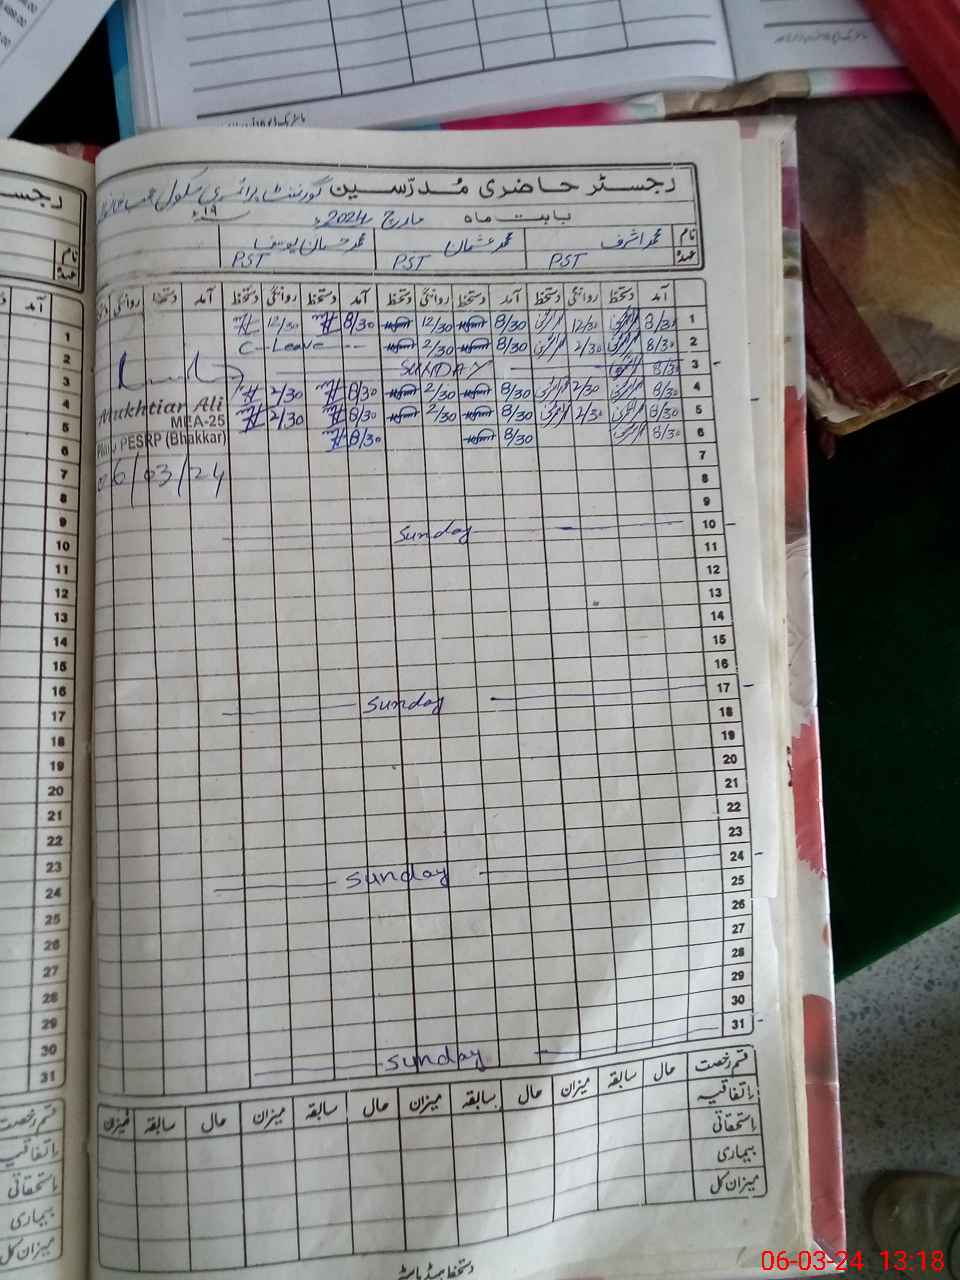 رجسٹر حاضری مُدرّسین گورنمنٹ پرائمری سکول
بابت ماہ مارچ 2024ء
نام محمد اشرف محمد عثمان محمد حسان یوسف
عہدہ PST PST PST
آمد دستخط روانگی دستخط آمد دستخط روانگی دستخط آمد دستخط روانگی دستخط آمد دستخط روانگی
1 8/30 12/30 8/30 12/30 8/30 12/30
2 8/30 2/30 8/30 2/30 C-Leave
3 8/30 SUNDAY
4 8/30 2/30 8/30 2/30 8/30 2/30
5 8/30 2/30 8/30 2/30 8/30 2/30
6 8/30 8/30 8/30
Mukhtiar Ali
MEA-25
PESRP (Bhakkar)
06/03/24
7
8
9
10 Sunday
11
12
13
14
15
16
17 Sunday
18
19
20
21
22
23
24 Sunday
25
26
27
28
29
30
31 Sunday
قسم رخصت حال سابقہ میزان حال سابقہ میزان حال سابقہ میزان حال سابقہ میزان
اتفاقیہ
استحقاقی
بیماری
میزان کل
دستخط ہیڈ ماسٹر
رجسٹر
نام
عہدہ
آمد
1
2
3
4
5
6
7
8
9
10
11
12
13
14
15
16
17
18
19
20
21
22
23
24
25
26
27
28
29
30
31
قسم رخصت
اتفاقیہ
استحقاقی
بیماری
میزان کل
06-03-24 13:18